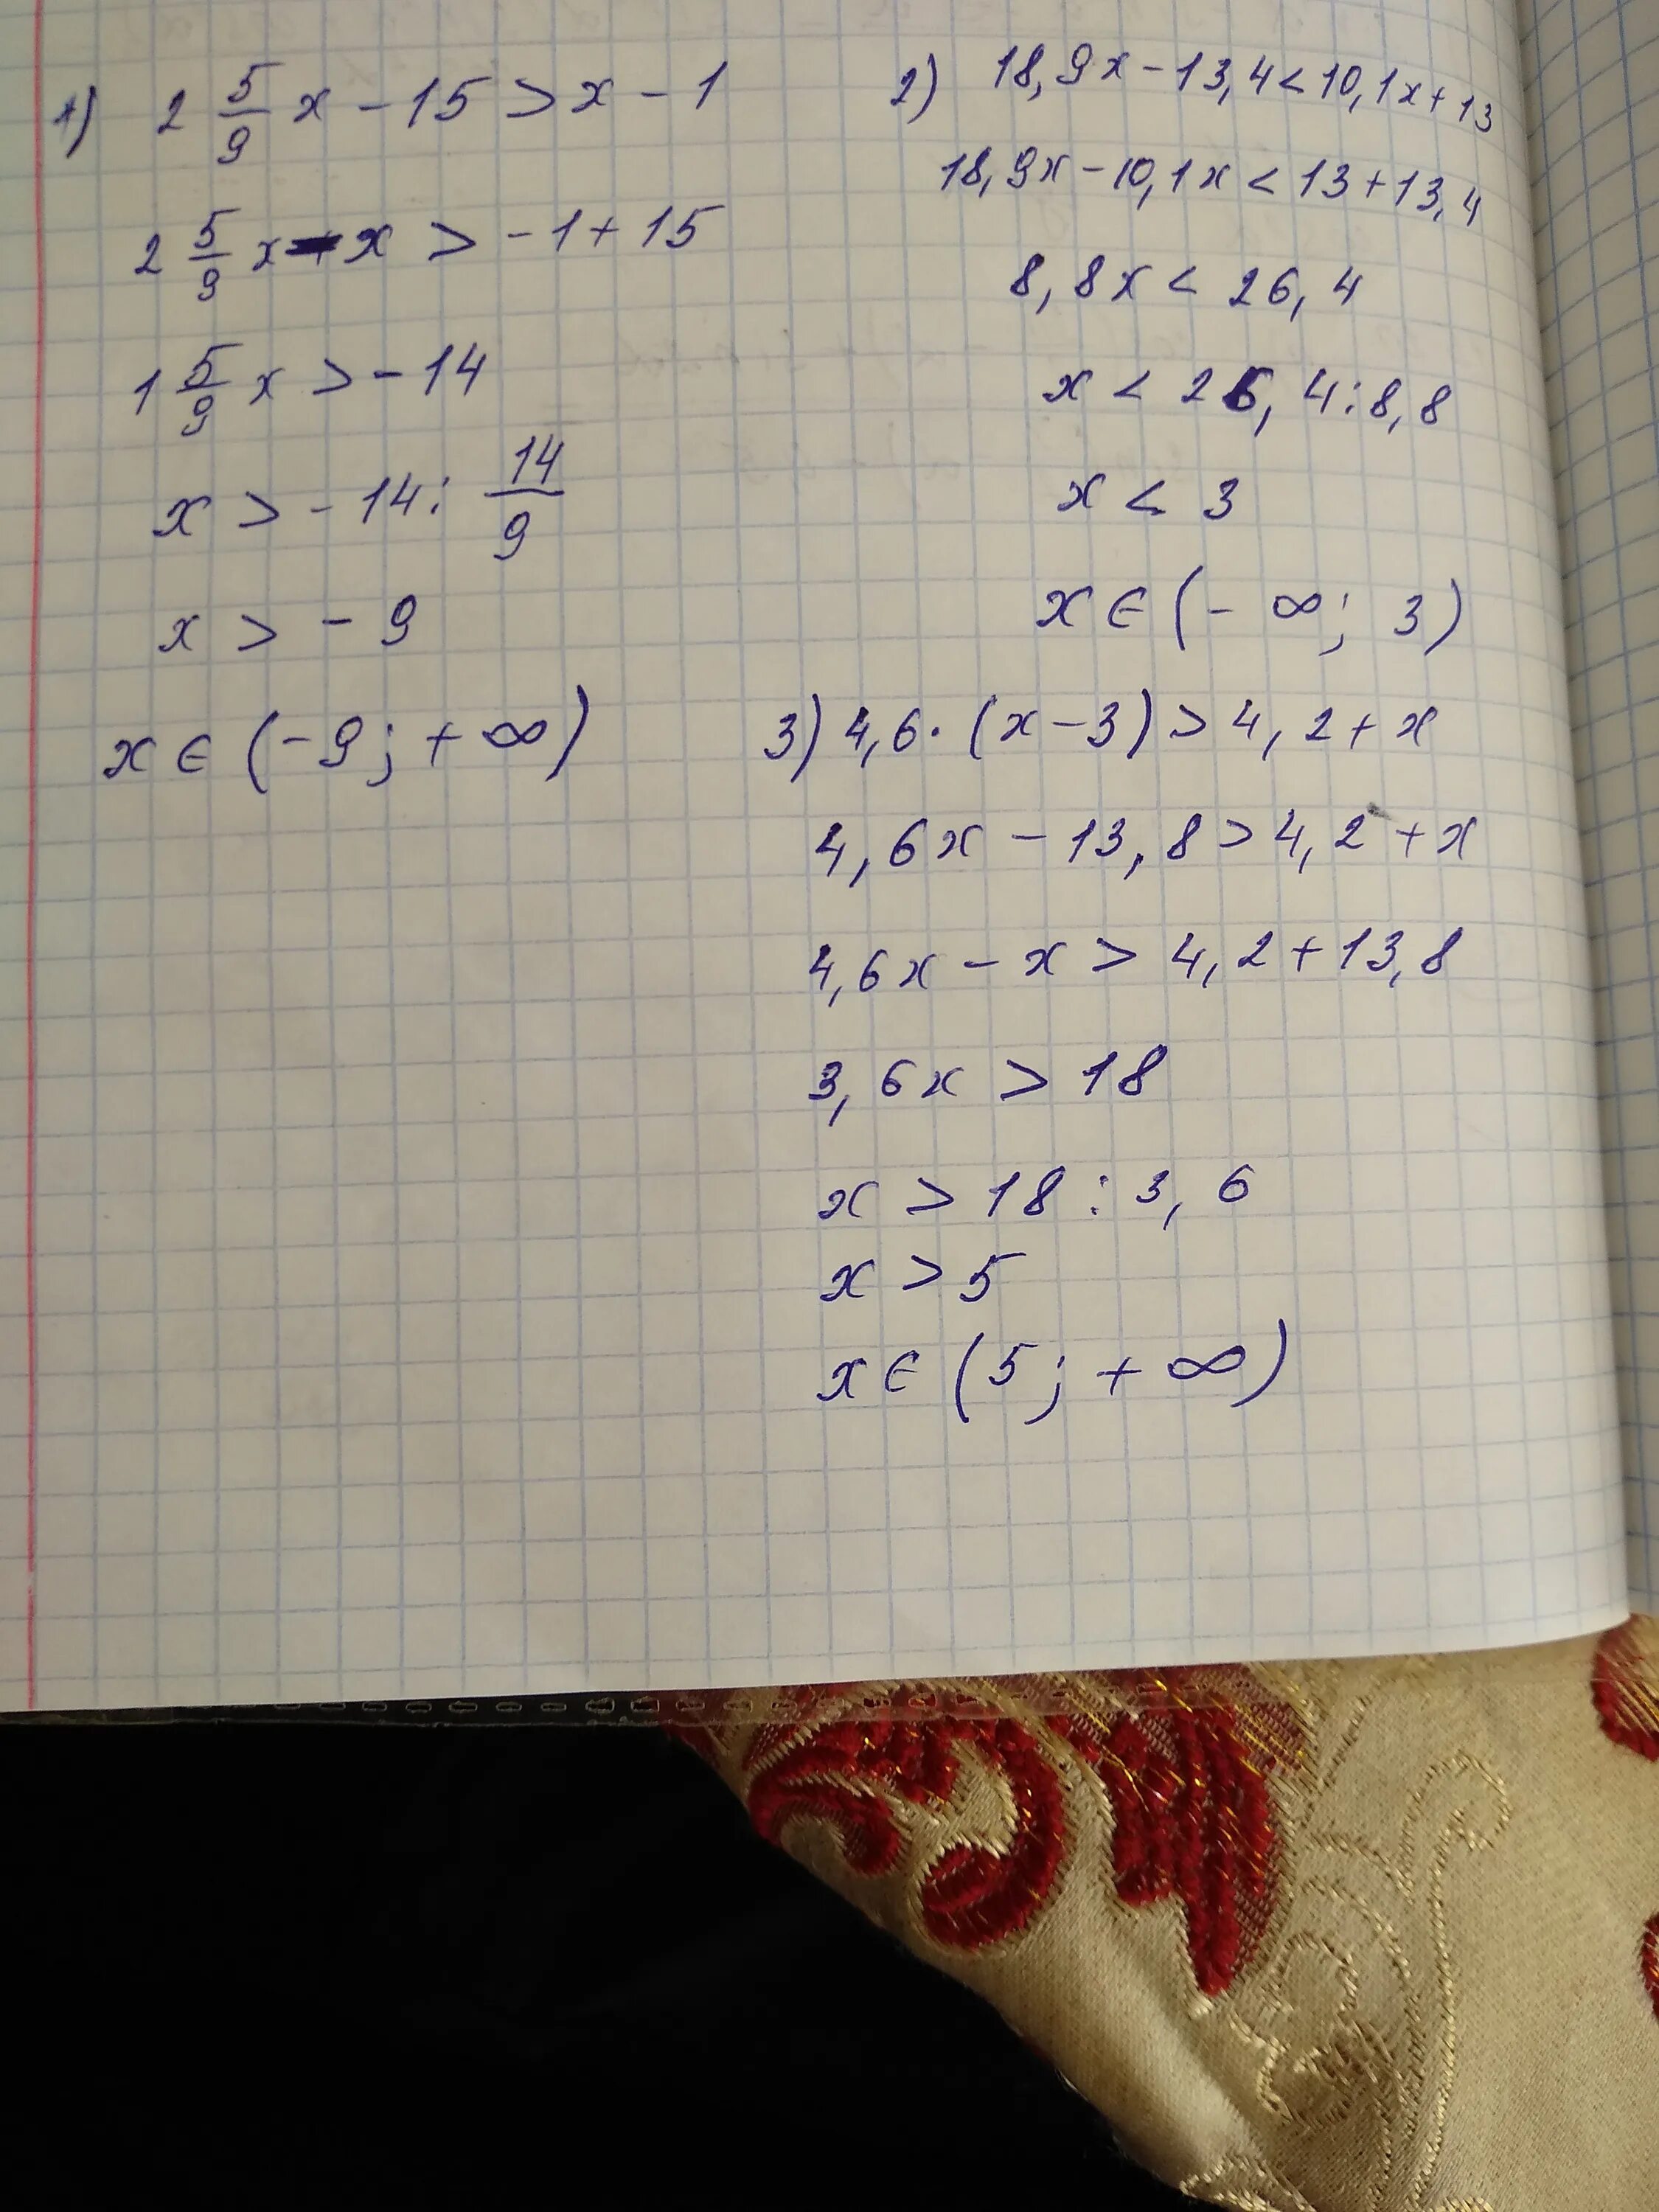 1) 2 5/9 x - 15 > x - 1
2 5/9 x - x > - 1 + 15
1 5/9 x > - 14
x > - 14 : 14/9
x > - 9
x ∈ (- 9 ; + ∞)
2) 18,9x - 13,4 < 10,1x + 13
18,9x - 10,1x < 13 + 13,4
8,8x < 26,4
x < 26,4 : 8,8
x < 3
x ∈ (- ∞; 3)
3) 4,6 · (x - 3) > 4,2 + x
4,6x - 13,8 > 4,2 + x
4,6x - x > 4,2 + 13,8
3,6x > 18
x > 18 : 3,6
x > 5
x ∈ (5 ; + ∞)